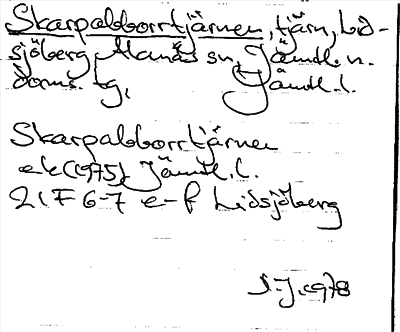 Skarpabborrtjärnen, tjärn, Lid-
sjöberg, Alanäs sn, Jämtl. n.
doms. tg, Jämtl. l.
Skarpabborrtjärnen
ek (1975) Jämtl. l.
21F 6-7 e-f Lidsjöberg
S.J. 1978